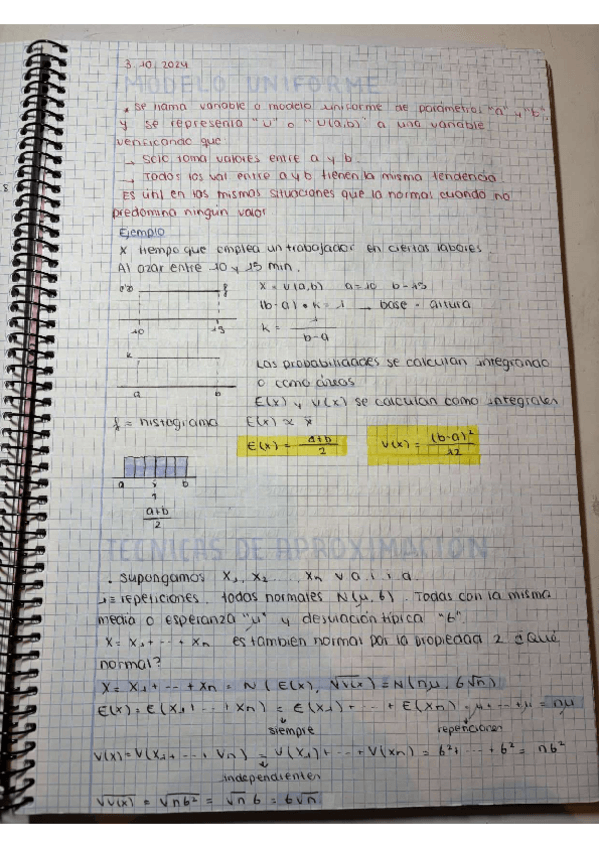 3. 10. 2024
MODELO UNIFORME
• se llama variable o modelo uniforme de parámetros "a" y "b"
y se representa "U" o "U(a,b)" a una variable
verificando que
→ solo toma valores entre a y b
→ Todos los val entre a y b tienen la misma tendencia
Es útil en las mismas situaciones que la normal cuando no
predomina ningún valor
Ejemplo
X tiempo que emplea un trabajador en ciertas labores
Al azar entre 10 y 15 min.
X = U(a,b) a=10 b=15
(b-a) • k = 1 → base - altura
f
10 15
k = 1/(b-a)
k
a b
Las probabilidades se calculan integrando
o como áreas
E(x) y V(x) se calculan como integrales
f = histograma E(x) ≈ x̄
E(x) = (a+b)/2 V(x) = (b-a)²/12
a b
(a+b)/2
TECNICAS DE APROXIMACIÓN
. Supongamos X₁, X₂ ..... Xn v a . i . i . a
repeticiones, todas normales N(μ, 6). Todas con la misma
media o esperanza "μ" y desviación típica "6".
X = X₁ + ... + Xn es también normal por la propiedad 2 ¿Qué
normal?
X = X₁ + ... + Xn = N ( E(x), √V(x) ) = N(nμ, 6√n)
E(x) = E(X₁ + ... + Xn) = E(X₁) + ... + E(Xn) = μ + ... + μ = nμ
siempre repeticiones
V(x) = V(X₁ + ... + Vn) = V(X₁) + ... + V(Xn) = 6² + ... + 6² = n6²
independientes
√V(x) = √n6² = √n 6 = 6√n